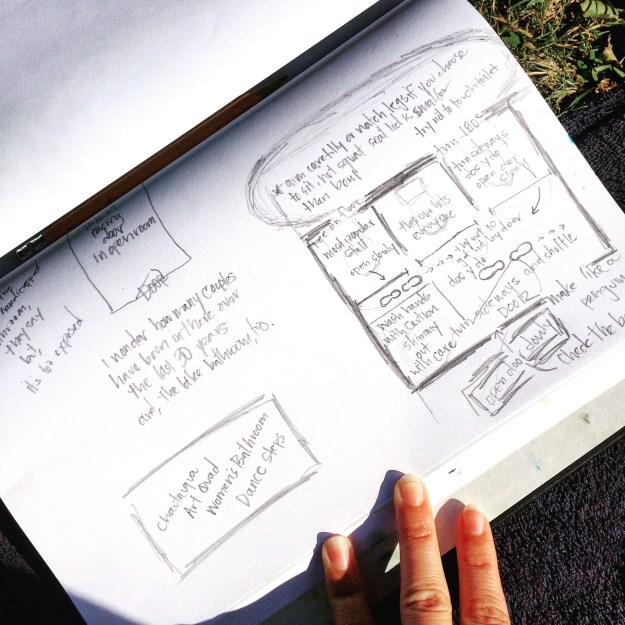 facing
door
in openroom
DOOR
handicapped
room,
they say
but
its too exposed
I wonder how many couples
have been in there over
the last 30 years
and, the lake bathroom, too.
Chautauqua
Art Quad
Women's Bathroom
Dance Steps
* aim carefully or match legs if you choose
to sit, not squat seat lid is smaller
than bowl
try not to touch toilet
pee on floor
most popular
stall
open slowly
everyone
turn 180°
turn sideways
open door
slowly
try not to
get hit by door
wash hands
with caution
shimmy
out
with care
turn sideways and shuffle
DOOR
make like a
penguin
open door slowly
check the